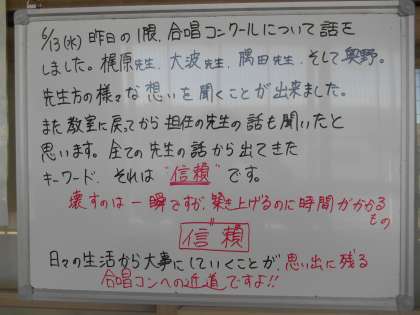 6/13(水) 昨日の1限、合唱コンクールについて話を
しました。梶原先生、大波先生、隅田先生、そして奥野。
先生方の様々な想いを聞くことが出来ました。
また教室に戻ってから担任の先生の話も聞いたと
思います。全ての先生の話から出てきた
キーワード、それは"信頼"です。
壊すのは一瞬ですが、築き上げるのに時間がかかる
もの
"
信頼
日々の生活から大事にしていくことが、思い出に残る
合唱コンへの近道ですよ!!